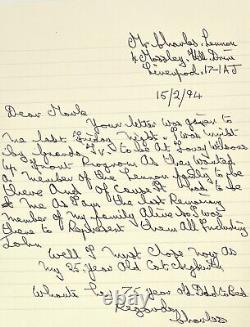 Mr Charles Lennon
Mossley Hill Drive
Liverpool. 17-1AJ
15/2/94
Dear Mark
Your letter was given to
me last Friday Night. I was with
T.V. to be At
Program As they wanted
at member of the Lennon family to be
there And of Course that had to be
me As I Am the last Remaing
member of my family Alive so I was
there to Represent them All Including
John
Well I must Close now As
my 25 year old Cat
75 year old Dad to Bed
Regards
Charles